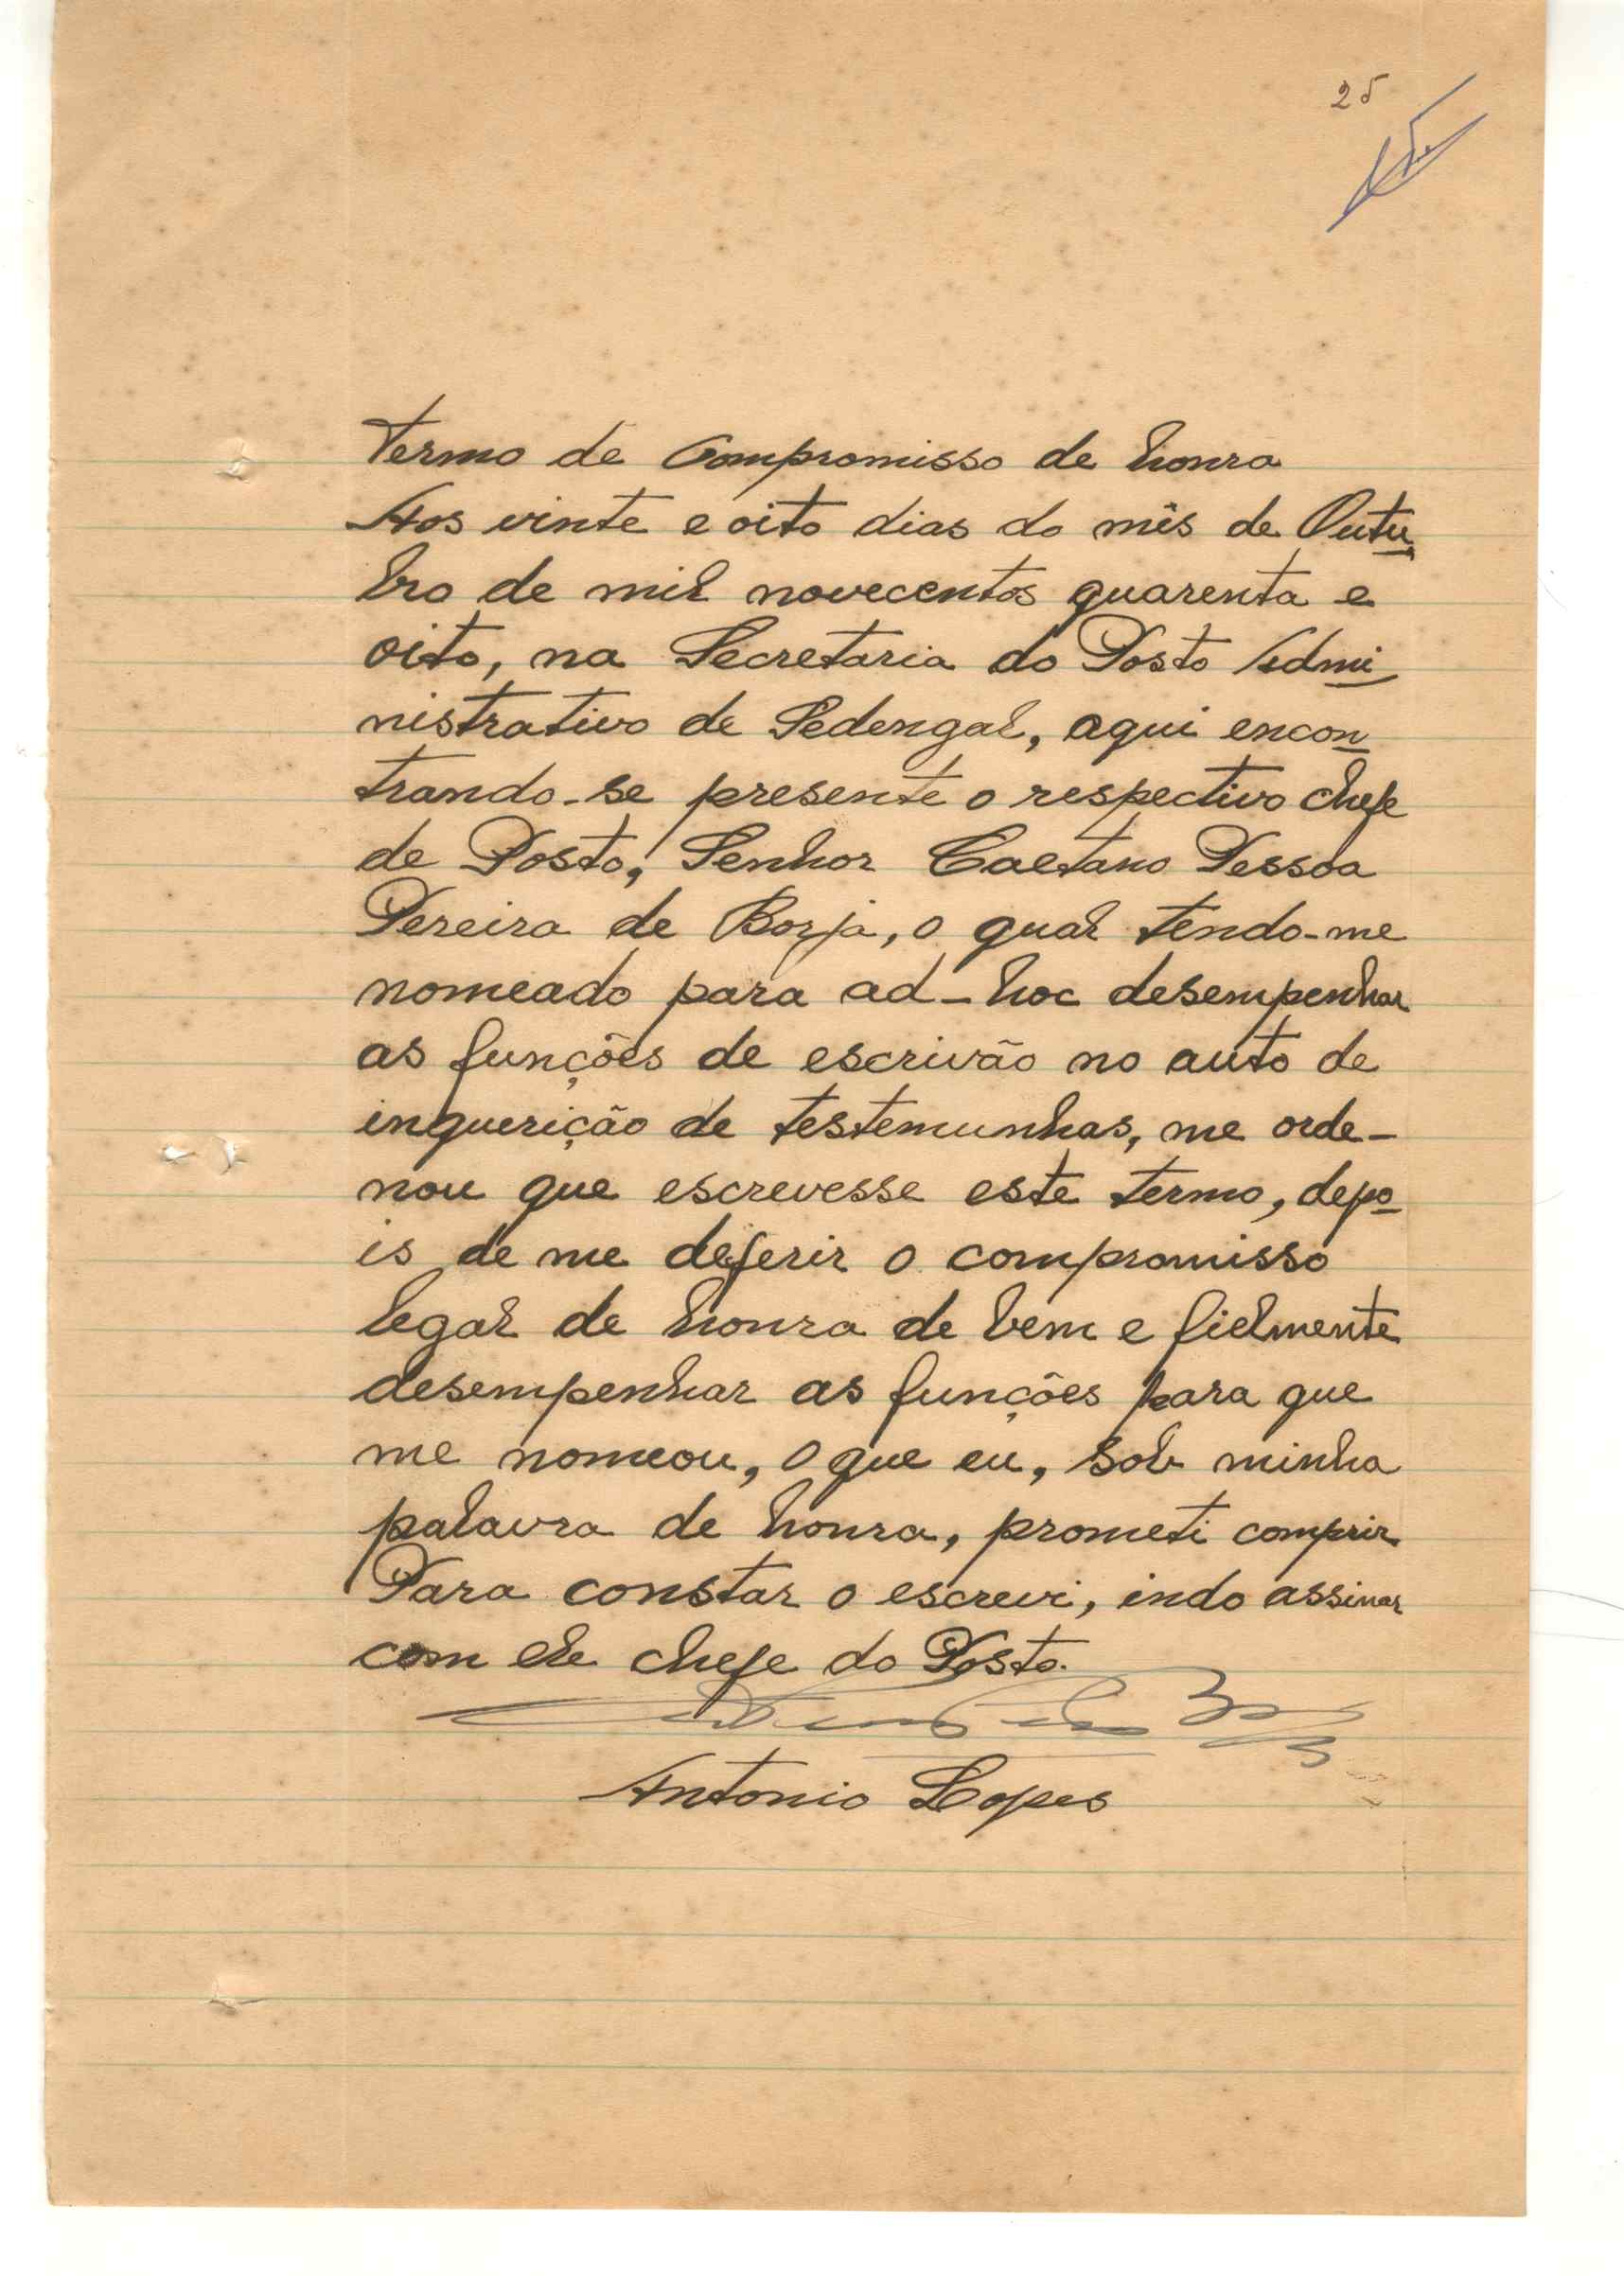 25
Termo de Compromisso de honra
Aos vinte e oito dias do mês de Outu
bro de mil novecentos quarenta e
oito, na Secretaria do Posto Admi
nistrativo de Sedengal, aqui encon
trando-se presente o respectivo chefe
de Posto, Senhor Caetano Pessoa
Pereira de Borja, o qual tendo-me
nomeado para ad-hoc desempenhar
as funções de escrivão no auto de
inquerição de testemunhas, me orde-
nou que escrevesse este termo, depo
is de me deferir o compromisso
legal de honra de bem e fielmente
desempenhar as funções para que
me nomeou, o que eu, sob minha
palavra de honra, prometi comprir
Para constar o escrevi, indo assinar
com ele chefe do Posto.
Antonio Lopes